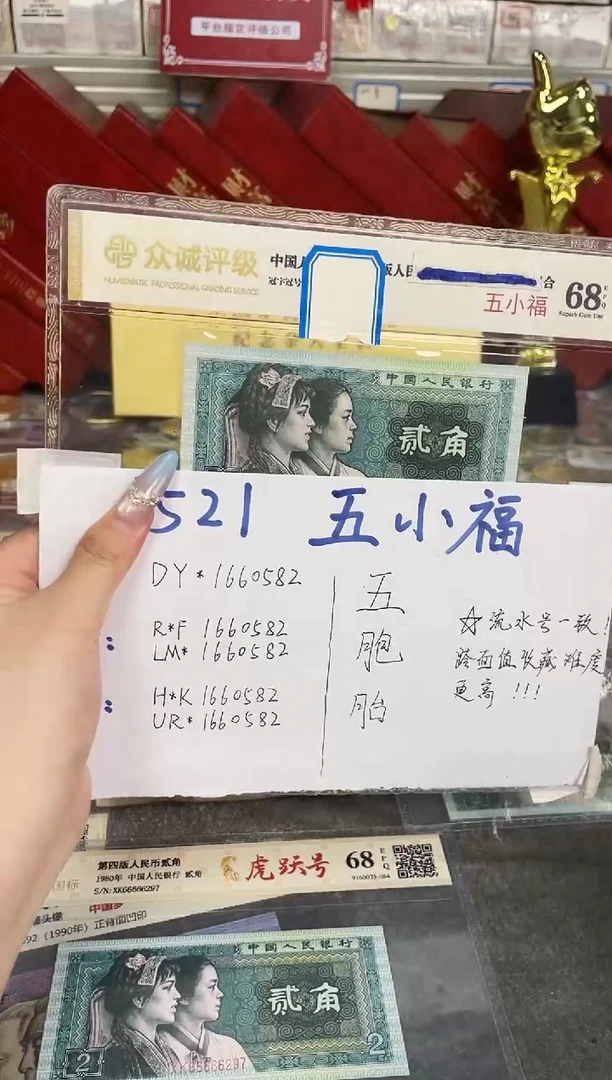 平台指定评级公司
众诚评级
NUMISMATIC PROFESSIONAL GRADING SERVICE
中国人
版人民
合
冠字冠号
五小福
68
EPQ
Superb Gem Unc
中国人民银行
贰角
521 五小福
DY*1660582
R*F 1660582
LM* 1660582
H*K 1660582
UR*1660582
五
胞
胎
☆流水号一致!
跨面值收藏难度
更高!!!
第四版人民币贰角
1980年 中国人民银行 贰角
S/N:XK66666297
虎跃号
68
EPQ
9160073-084
国标
中国梦
(1990年) 正背面凹印
中国人民银行
贰角
2
2